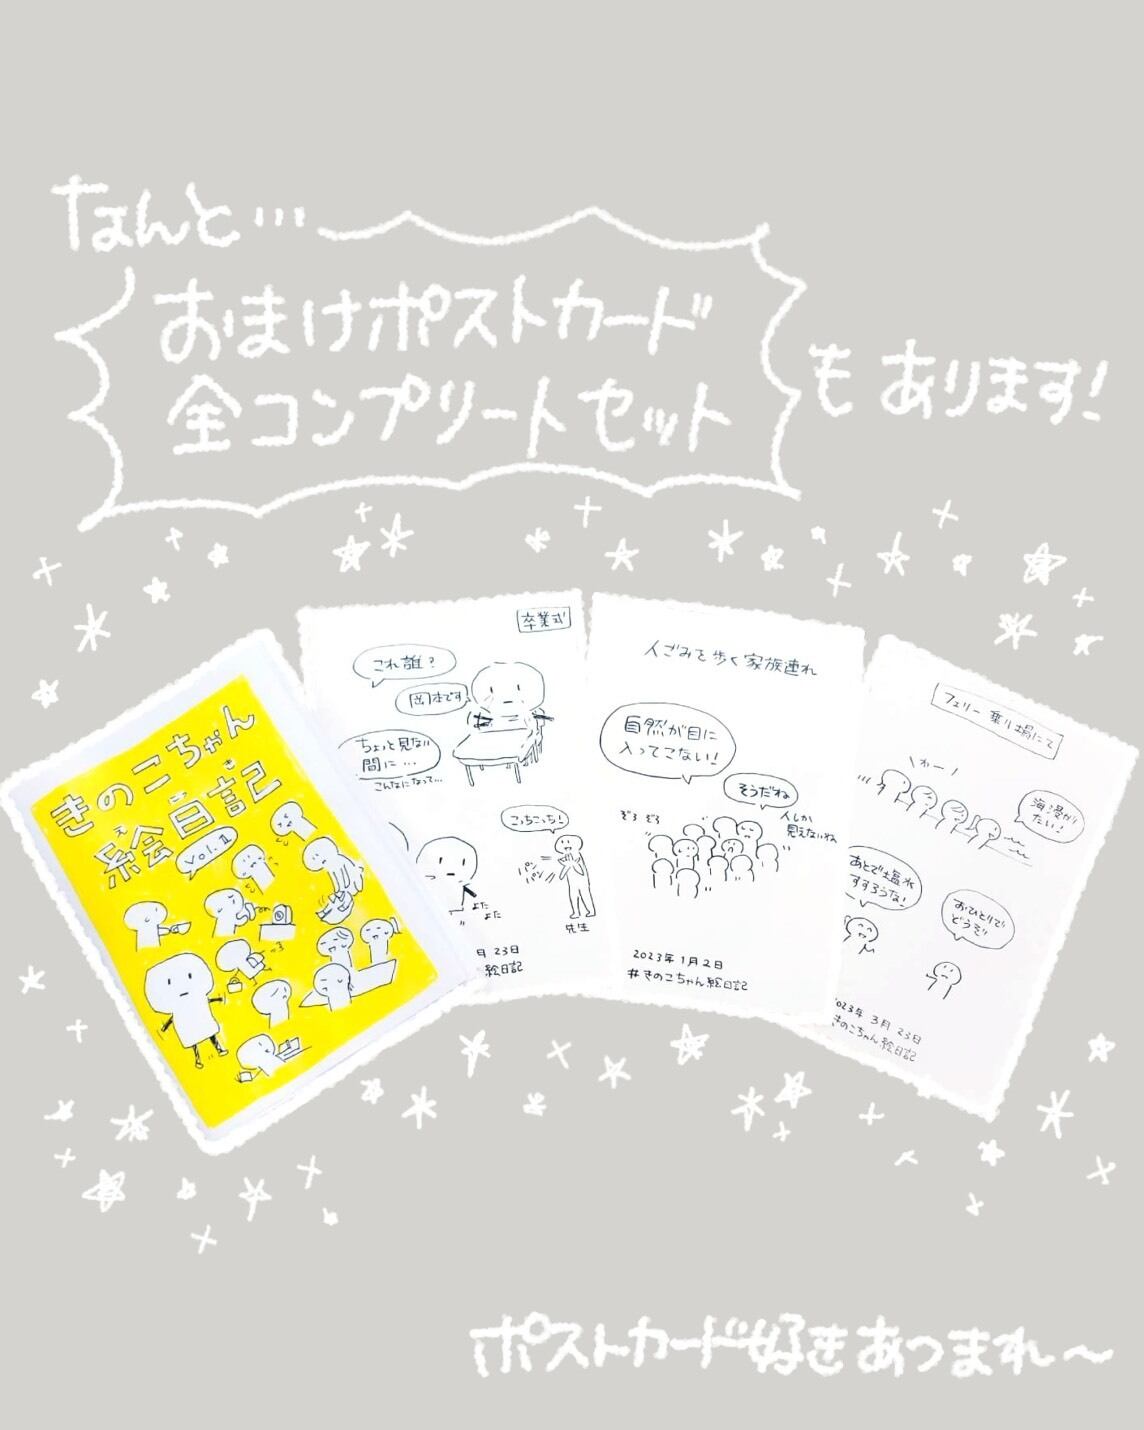 なんと…
おまけポストカード
全コンプリートセット
もあります!
きのこちゃん
絵日記
え
にっき
vol.1
卒業式
これ誰?
岡本です
ちょっと見ない
間に…
こんなになって…
こっちこっち!
パン
パン
よた
よた
先生
月23日
絵日記
人ごみを歩く家族連れ
自然が目に
入ってこない!
そうだね
人しか
見えないね
ぞろぞろ
2023年1月2日
#きのこちゃん絵日記
フェリー乗り場にて
わー
海浸かり
たい!
あとで塩水
すするうな!
おひとりで
どうぞ
2023年3月23日
きのこちゃん絵日記
ポストカード好きあつまれ〜